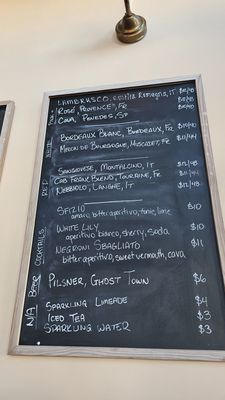 LAMBRUSCO, EMILIA ROMAGNA, IT
ROSÉ PROVENCE, FR
CAVA, PENEDES, SP
WHITE
BORDEAUX BLANC, BORDEAUX, FR
MACON DE BOURGOGNE, MUSCADET, FR
RED
SANGIOVESE, MONTALCINO, IT
CAB FRANC BLEND, TOURAINE, FR
NEBBIOLO, LANGHE, IT
COCKTAILS
SFIZIO $10
amaro, bitter aperitivo, tonic, lime
WHITE LILY $10
aperitivo bianco, sherry, soda
NEGRONI SBAGLIATO $11
bitter aperitivo, sweet vermouth, cava
BEER
PILSNER, GHOST TOWN $6
N/A
SPARKLING LIMEADE $4
ICED TEA $3
SPARKLING WATER $3